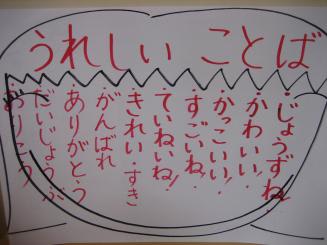 うれしい ことば
・じょうずね
・かわいい!
・かっこいい!
・すごいね!
・ていねいね!
・きれい・すき
・がんばれ
・ありがとう
・だいじょうぶ
・おりこう